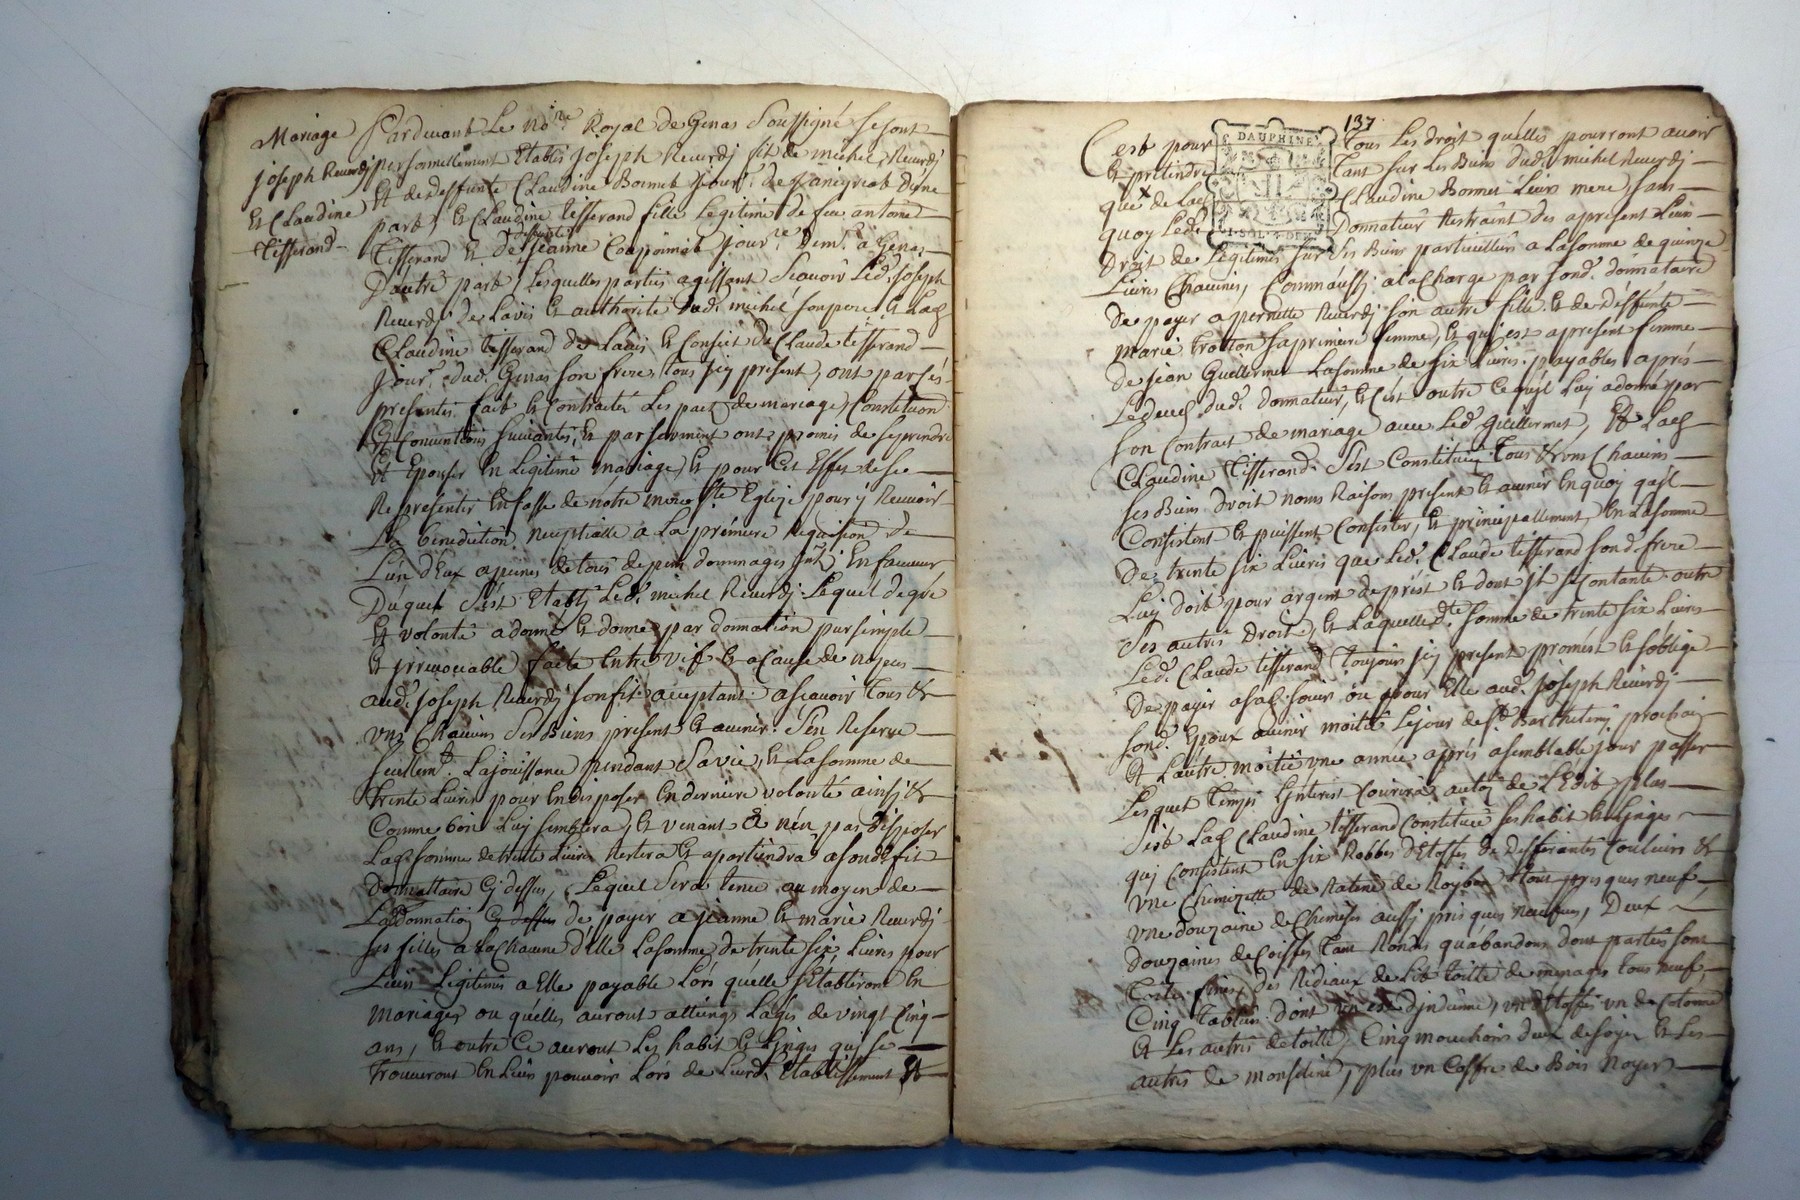 Mariage
joseph Reverdj
Et Claudine
Tisserand
Pardevant Le no.re Royal de Genas Soussigné se sont
personnellement Etablis joseph Reverdj fils de michel Reverdj
Et de deffunte Claudine Bonnet jour.r de d'une
part, Et Claudine tisserand fille Legitime de feu antoine
Tisserand Et de deffunte jeanne jour.re dem.t a Genas
D'autre part, Lesquelles parties agissant Scavoir Led. joseph
Reverdj de Lavis Et authorité dud. michel son pere, Et Lad.
Claudine tisserand de Lavis Et Conseil de Claude tisserand
jour.r dud. Genas son frere, tous jcy present, ont par ses
presentes fait Et Contracté Les pact de mariage, Constitution
Et Conventions suivantes, Et par serment ont promis de se prendre
Et Epouser En Legitime mariage, Et pour Cet Effet de se
Representer En fasse de notre mere S.te Eglize pour y Recevoir
La benediction nuptialle a La premiere Requisition de
L'un d'Eux a peines de tous depens dommages jnt. En faveur
Duquel s'est Etablj Led. michel Reverdj Lequel de gré
Et volonté a donné Et donne par donnation pur simple
Et jrrevocable faite Entre vif Et a Cause de nopces
aud. joseph Reverdj son fils acceptant ascavoir tous &
vns Chacuns ses Biens present Et avenir S'en Reserve
seullem.t La jouissance pendant sa vie, Et La somme de
trente Livres pour En disposer En derniere volonté ainsj &
Comme bon Luy semblera, Et venant a n'en pas disposer
Lad. somme de trente Livres Restera Et apartiendra a sond. fils
Donnattaire Cj dessus, Lequel sera tenu au moyen de
Lad. donnation Cj dessus de payer a jeanne Et marie Reverdj
ses filles a Chacune d'Elle La somme de trente six Livres pour
Leur Legitimes a Elle payable Lors qu'elle s'Etabliront En
mariages ou qu'elles auront atteings Lages de vingt Cinq
ans, Et outre Ce auront Les habit Et Linges qui se
trouveront En Leur pouvoir Lors de Leurd. Etablissement &
137
C. DAUPHINÉ
1. SOL. 4. DEN.
C'est pour tous Les droit qu'elles pourront avoir
Et pretendre tant sur Les Biens dud. michel Reverdj
que de Lad. Claudine Bonnet Leurs mere, sans
quoy Led. Donnateur Restraint des a present Leur
Droit de Legitimes sur ses Biens particulliers a La somme de quinze
Livres Chacunes, Comm'aussj a La Charge par sond. donnataire
De payer a pernette Reverdj son autre fille Et de deffunte
marie trotton sa premiere femme, Et qui est a present femme
de jean Guillermet La somme de six Livres payables aprés
Le deces dud. donnateur, Et C'est outre Ce qu'jl Luy a donné par
son Contract de mariage avec Led. Guillermet, Et Lad.
Claudine Tisserand s'est Constituée tous & vns Chacuns
ses Biens droit noms Raisons present Et avenir En quoy qu'jl
Consistent Et puissent Consister, Et principallement En La somme
De trente six Livres que Led. Claude tisserand sond. frere
Luy doit pour argent de prést Et dont jl se Contante outre
ses autres Droit, Et Laquelle d.te somme de trente six Livres
Led. Claude tisserand toujours jcj present promést Et s'oblige
De payer a sad. sœur ou pour Elle aud. joseph Reverdj
sond. Epoux avenir moitié Le jour de S.t Barthelemy prochain
Et L'autre moitié vne année aprés a semblable jour passer
Lesquel temps L'interest Courira au tau de L'Edit, plus
s'est Lad. Claudine tisserand Constituée ses habit Et Linges
qui Consistent En six Robbes d'Etoffes de differantes Couleurs &
vne Chemizette de Ratine de Roybon tout presques neuf
vne douzaine de Chemises aussj presques neufves, Deux
Douzaines de Coiffes tant Rondes qu'abandons dont parties sont
toile fines, des Rideaux de Lit toille de menages tous neuf,
Cinq tabliers dont vn est d'jndienne, vn d'Etoffe vn de Cotonne
Et Les autres de toille, Cinq mouchoirs deux de soye Et Les
autres de monseline, plus vn Coffre de Bois Noyer